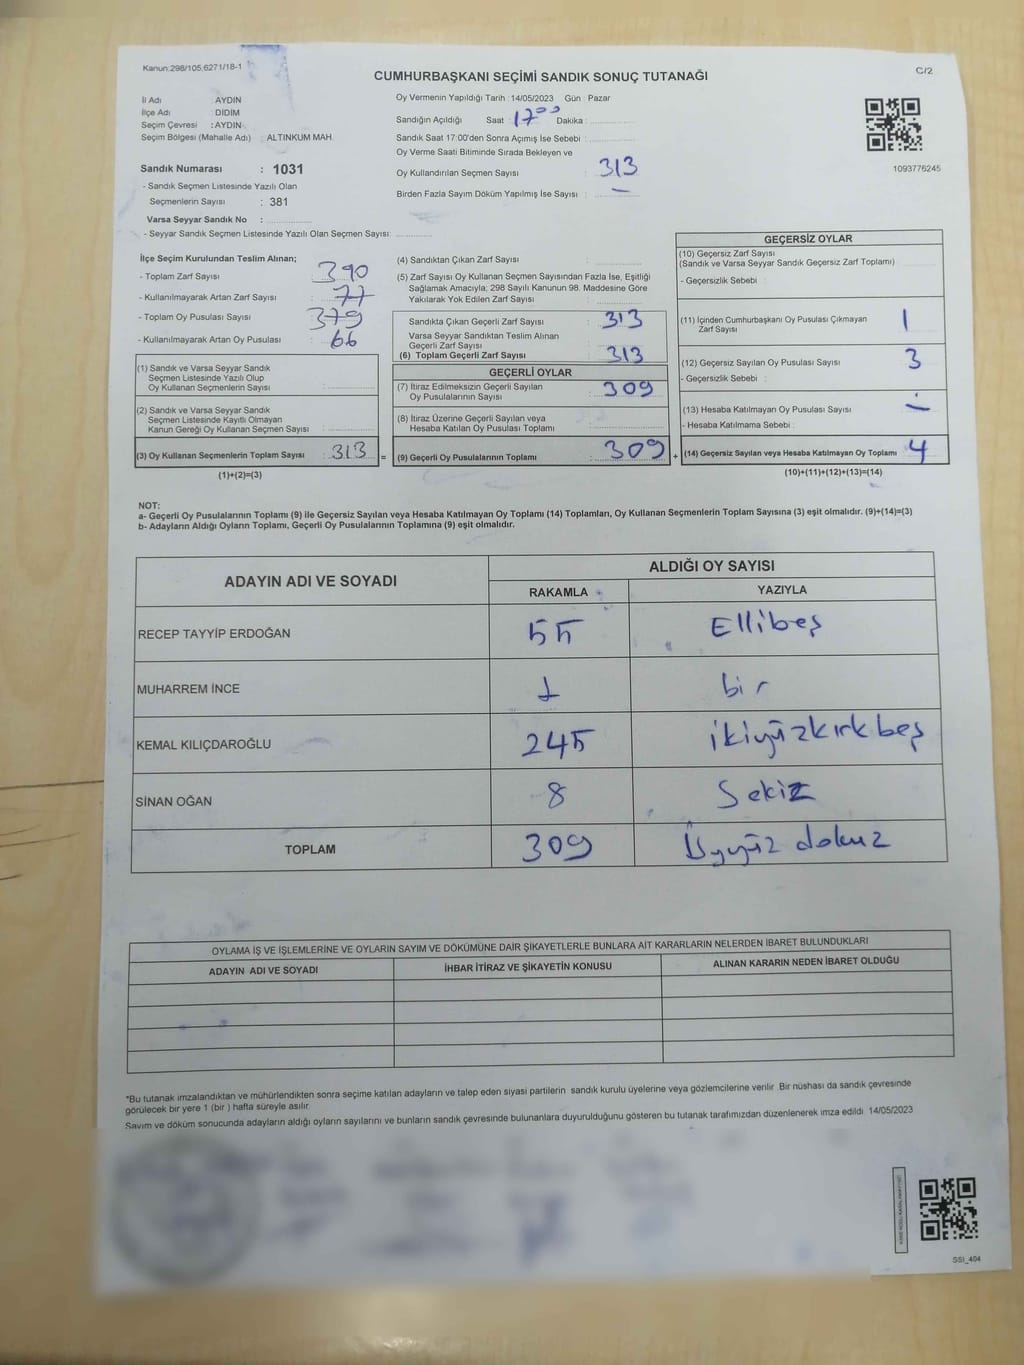 Kanun:298/105,6271/18-1
CUMHURBAŞKANI SEÇİMİ SANDIK SONUÇ TUTANAĞI
C/2
İl Adı : AYDIN
İlçe Adı : DİDİM
Seçim Çevresi : AYDIN
Seçim Bölgesi (Mahalle Adı) : ALTINKUM MAH.
Oy Vermenin Yapıldığı Tarih :14/05/2023 Gün : Pazar
Sandığın Açıldığı Saat : 17 00 Dakika :
Sandık Saat 17:00'den Sonra Açımış İse Sebebi :
Oy Verme Saati Bitiminde Sırada Bekleyen ve
Oy Kullandırılan Seçmen Sayısı : 313
Birden Fazla Sayım Döküm Yapılmış İse Sayısı : –
1093776245
Sandık Numarası : 1031
- Sandık Seçmen Listesinde Yazılı Olan
Seçmenlerin Sayısı : 381
Varsa Seyyar Sandık No :
- Seyyar Sandık Seçmen Listesinde Yazılı Olan Seçmen Sayısı:
İlçe Seçim Kurulundan Teslim Alınan;
- Toplam Zarf Sayısı : 390
- Kullanılmayarak Artan Zarf Sayısı : 77
- Toplam Oy Pusulası Sayısı : 379
- Kullanılmayarak Artan Oy Pusulası : 66
(1) Sandık ve Varsa Seyyar Sandık
Seçmen Listesinde Yazılı Olup
Oy Kullanan Seçmenlerin Sayısı :
(2) Sandık ve Varsa Seyyar Sandık
Seçmen Listesinde Kayıtlı Olmayan
Kanun Gereği Oy Kullanan Seçmen Sayısı :
(3) Oy Kullanan Seçmenlerin Toplam Sayısı : 313 =
(1)+(2)=(3)
(4) Sandıktan Çıkan Zarf Sayısı :
(5) Zarf Sayısı Oy Kullanan Seçmen Sayısından Fazla İse, Eşitliği
Sağlamak Amacıyla; 298 Sayılı Kanunun 98. Maddesine Göre
Yakılarak Yok Edilen Zarf Sayısı :
Sandıkta Çıkan Geçerli Zarf Sayısı : 313
Varsa Seyyar Sandıktan Teslim Alınan
Geçerli Zarf Sayısı
(6) Toplam Geçerli Zarf Sayısı : 313
GEÇERLİ OYLAR
(7) İtiraz Edilmeksizin Geçerli Sayılan
Oy Pusulalarının Sayısı : 309
(8) İtiraz Üzerine Geçerli Sayılan veya
Hesaba Katılan Oy Pusulası Toplamı :
(9) Geçerli Oy Pusulalarının Toplamı : 309 +
GEÇERSİZ OYLAR
(10) Geçersiz Zarf Sayısı
(Sandık ve Varsa Seyyar Sandık Geçersiz Zarf Toplamı)
- Geçersizlik Sebebi :
(11) İçinden Cumhurbaşkanı Oy Pusulası Çıkmayan
Zarf Sayısı : 1
(12) Geçersiz Sayılan Oy Pusulası Sayısı : 3
- Geçersizlik Sebebi :
(13) Hesaba Katılmayan Oy Pusulası Sayısı : –
- Hesaba Katılmama Sebebi :
(14) Geçersiz Sayılan veya Hesaba Katılmayan Oy Toplamı : 4
(10)+(11)+(12)+(13)=(14)
NOT:
a- Geçerli Oy Pusulalarının Toplamı (9) ile Geçersiz Sayılan veya Hesaba Katılmayan Oy Toplamı (14) Toplamları, Oy Kullanan Seçmenlerin Toplam Sayısına (3) eşit olmalıdır. (9)+(14)=(3)
b- Adayların Aldığı Oyların Toplamı, Geçerli Oy Pusulalarının Toplamına (9) eşit olmalıdır.
ADAYIN ADI VE SOYADI
ALDIĞI OY SAYISI
RAKAMLA YAZIYLA
RECEP TAYYİP ERDOĞAN 55 Ellibeş
MUHARREM İNCE 1 bir
KEMAL KILIÇDAROĞLU 245 ikiyüzkırkbeş
SİNAN OĞAN 8 Sekiz
TOPLAM 309 Üçyüz dokuz
OYLAMA İŞ VE İŞLEMLERİNE VE OYLARIN SAYIM VE DÖKÜMÜNE DAİR ŞİKAYETLERLE BUNLARA AİT KARARLARIN NELERDEN İBARET BULUNDUKLARI
ADAYIN ADI VE SOYADI İHBAR İTİRAZ VE ŞİKAYETİN KONUSU ALINAN KARARIN NEDEN İBARET OLDUĞU
*Bu tutanak imzalandıktan ve mühürlendikten sonra seçime katılan adayların ve talep eden siyasi partilerin sandık kurulu üyelerine veya gözlemcilerine verilir. Bir nüshası da sandık çevresinde
görülecek bir yere 1 (bir ) hafta süreyle asılır.
Sayım ve döküm sonucunda adayların aldığı oyların sayılarını ve bunların sandık çevresinde bulunanlara duyurulduğunu gösteren bu tutanak tarafımızdan düzenlenerek imza edildi. 14/05/2023
SSI_404